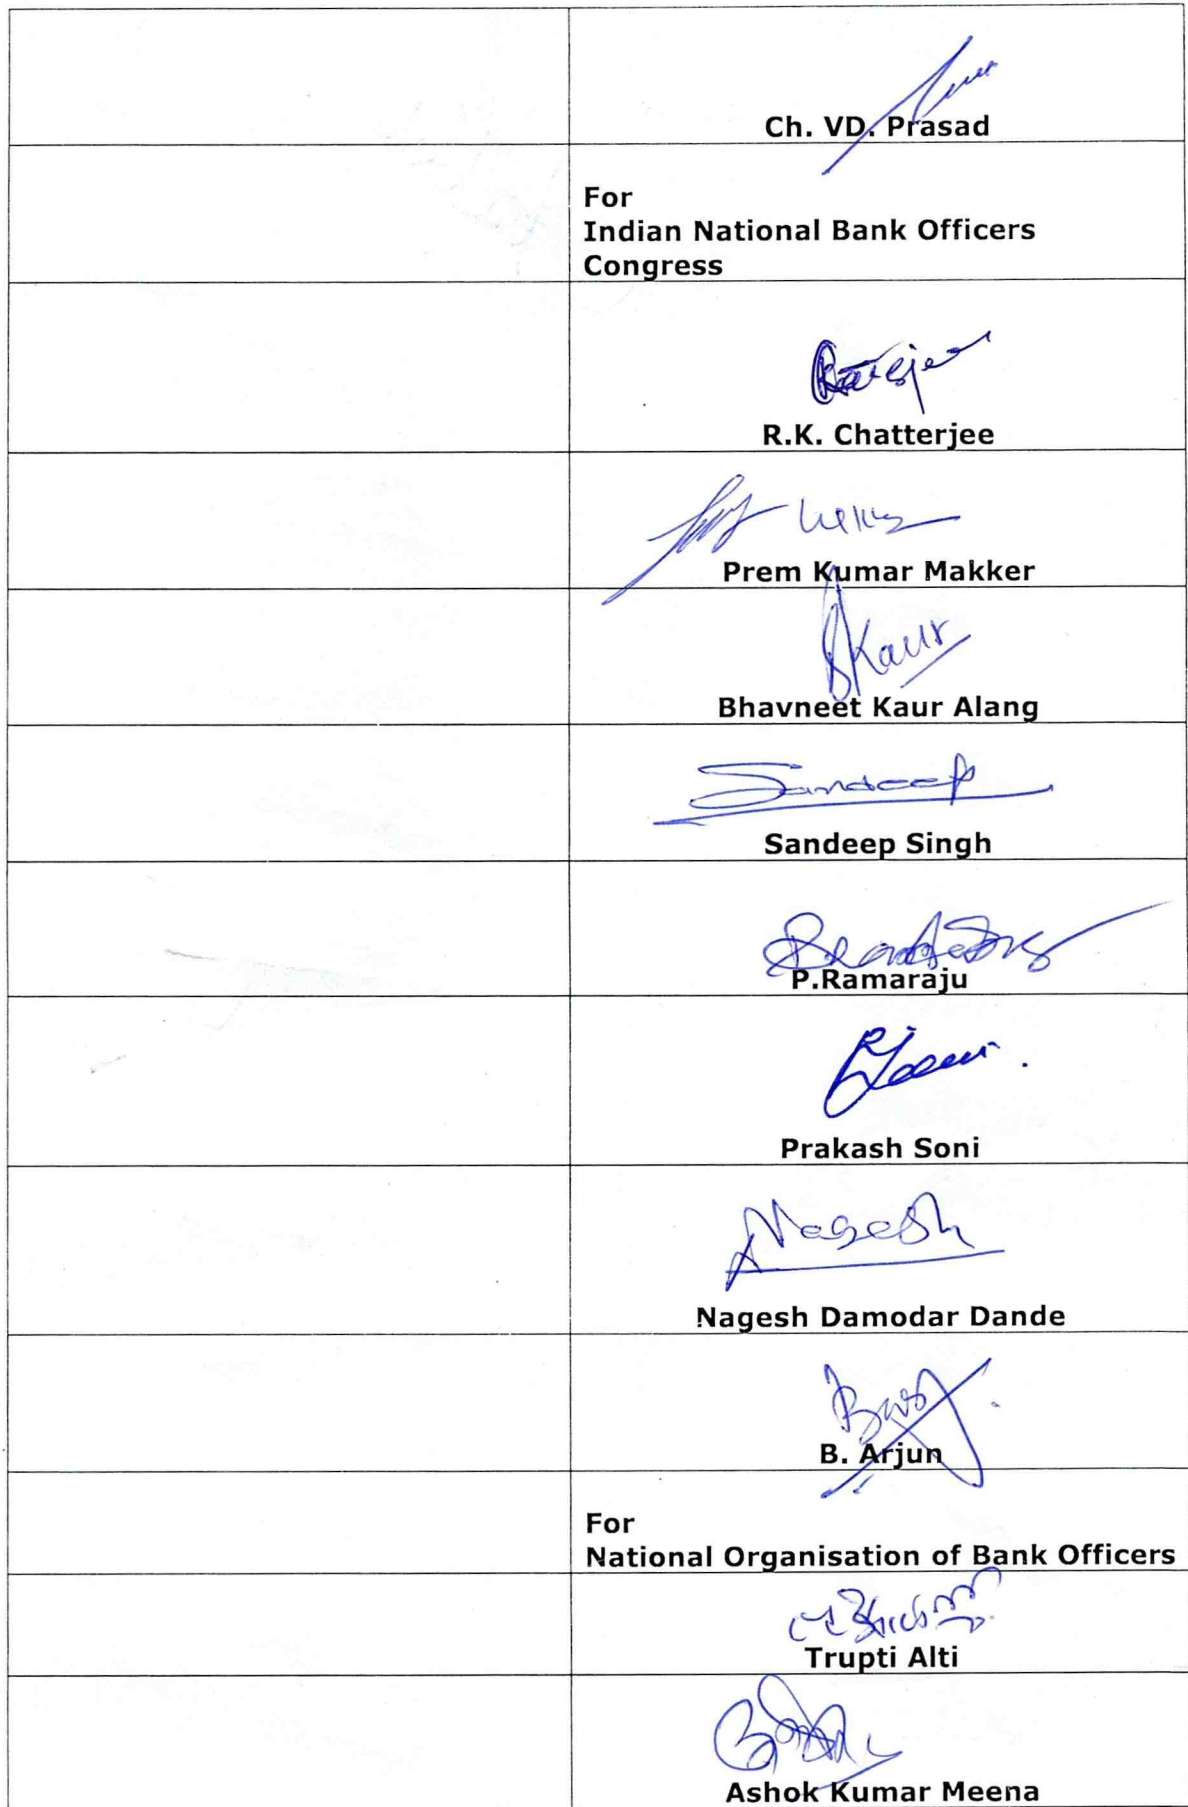 Ch. VD. Prasad
For
Indian National Bank Officers
Congress
R.K. Chatterjee
Prem Kumar Makker
Kaur
Bhavneet Kaur Alang
Sandeep
Sandeep Singh
P.Ramaraju
Prakash Soni
Nagesh
Nagesh Damodar Dande
B. Arjun
For
National Organisation of Bank Officers
Trupti Alti
Ashok Kumar Meena